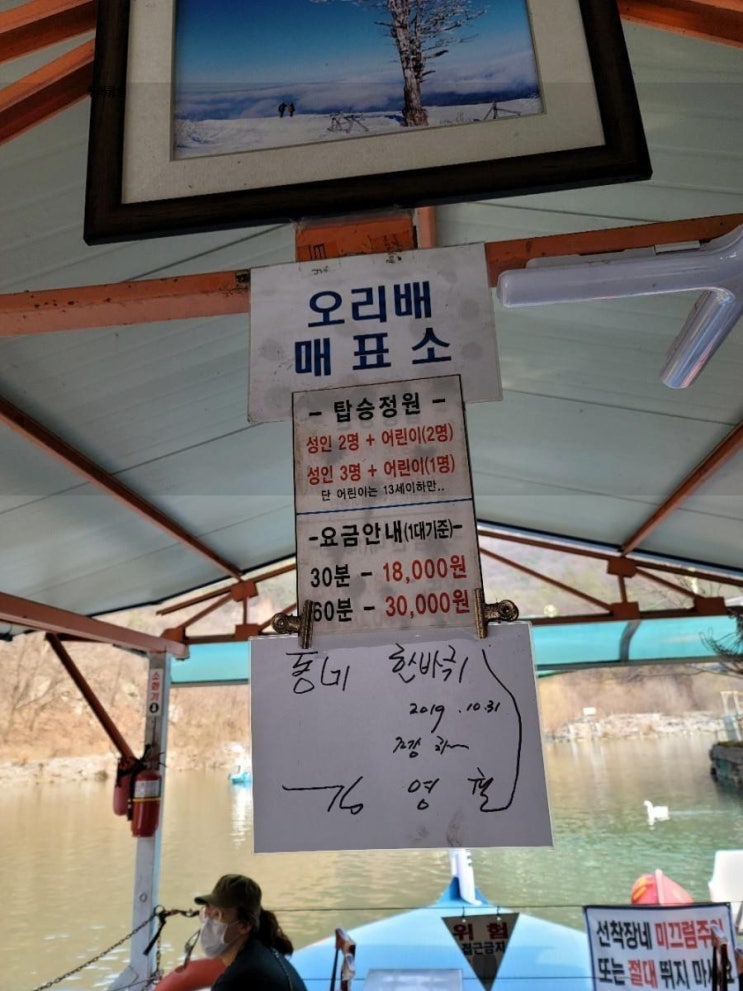 오리배
매표소
- 탑승정원 -
성인 2명 + 어린이(2명)
성인 3명 + 어린이(1명)
단 어린이는 13세이하만..
-요금안내(1대기준)-
30분 - 18,000원
60분 - 30,000원
동네 한바퀴
2019.10.31
김영철
소화기
위험
접근금지
선착장네 미끄럼주의
또는 절대 뛰지 마세요